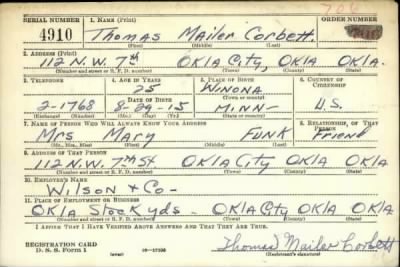 706
SERIAL NUMBER 1. NAME (Print) ORDER NUMBER
4910 Thomas Mailer Corbett
(First) (Middle) (Last)
2. ADDRESS (Print)
112 N.W. 7th OKla City, OKla OKla.
(Number and street or R. F. D. number) (Town) (County) (State)
3. TELEPHONE 4. AGE IN YEARS 5. PLACE OF BIRTH 6. COUNTRY OF CITIZENSHIP
25 Winona
DATE OF BIRTH (Town or county)
2-1768 8-29-15 Minn- U.S.
(Exchange) (Number) (Mo.) (Day) (Yr.) (State or country)
7. NAME OF PERSON WHO WILL ALWAYS KNOW YOUR ADDRESS 8. RELATIONSHIP OF THAT PERSON
Mrs Mary Funk Friend
(Mr., Mrs., Miss) (First) (Middle) (Last)
9. ADDRESS OF THAT PERSON
112 N.W. 7th St OKla City OKla OKla
(Number and street or R. F. D. number) (Town) (County) (State)
10. EMPLOYER'S NAME
Wilson & Co-
11. PLACE OF EMPLOYMENT OR BUSINESS
OKla Stock yds. - OKla City OKla OKla
(Number and street or R. F. D. number) (Town) (County) (State)
I AFFIRM THAT I HAVE VERIFIED ABOVE ANSWERS AND THAT THEY ARE TRUE.
REGISTRATION CARD
D. S. S. Form 1 (over)
Thomas Mailer Corbett
(Registrant's signature)